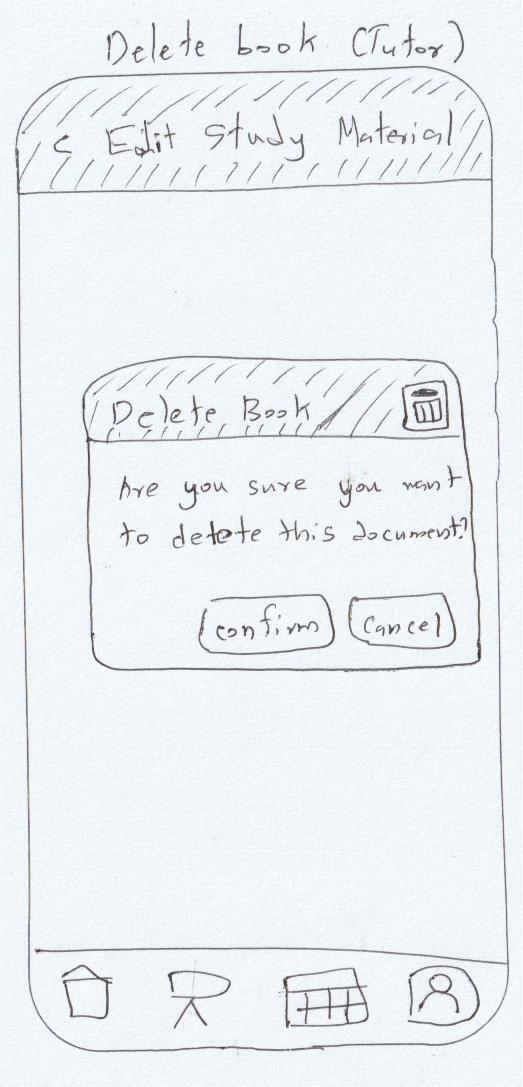 Delete book (Tutor)
< Edit Study Material
Delete Book
Are you sure you want
to delete this document?
Confirm
Cancel